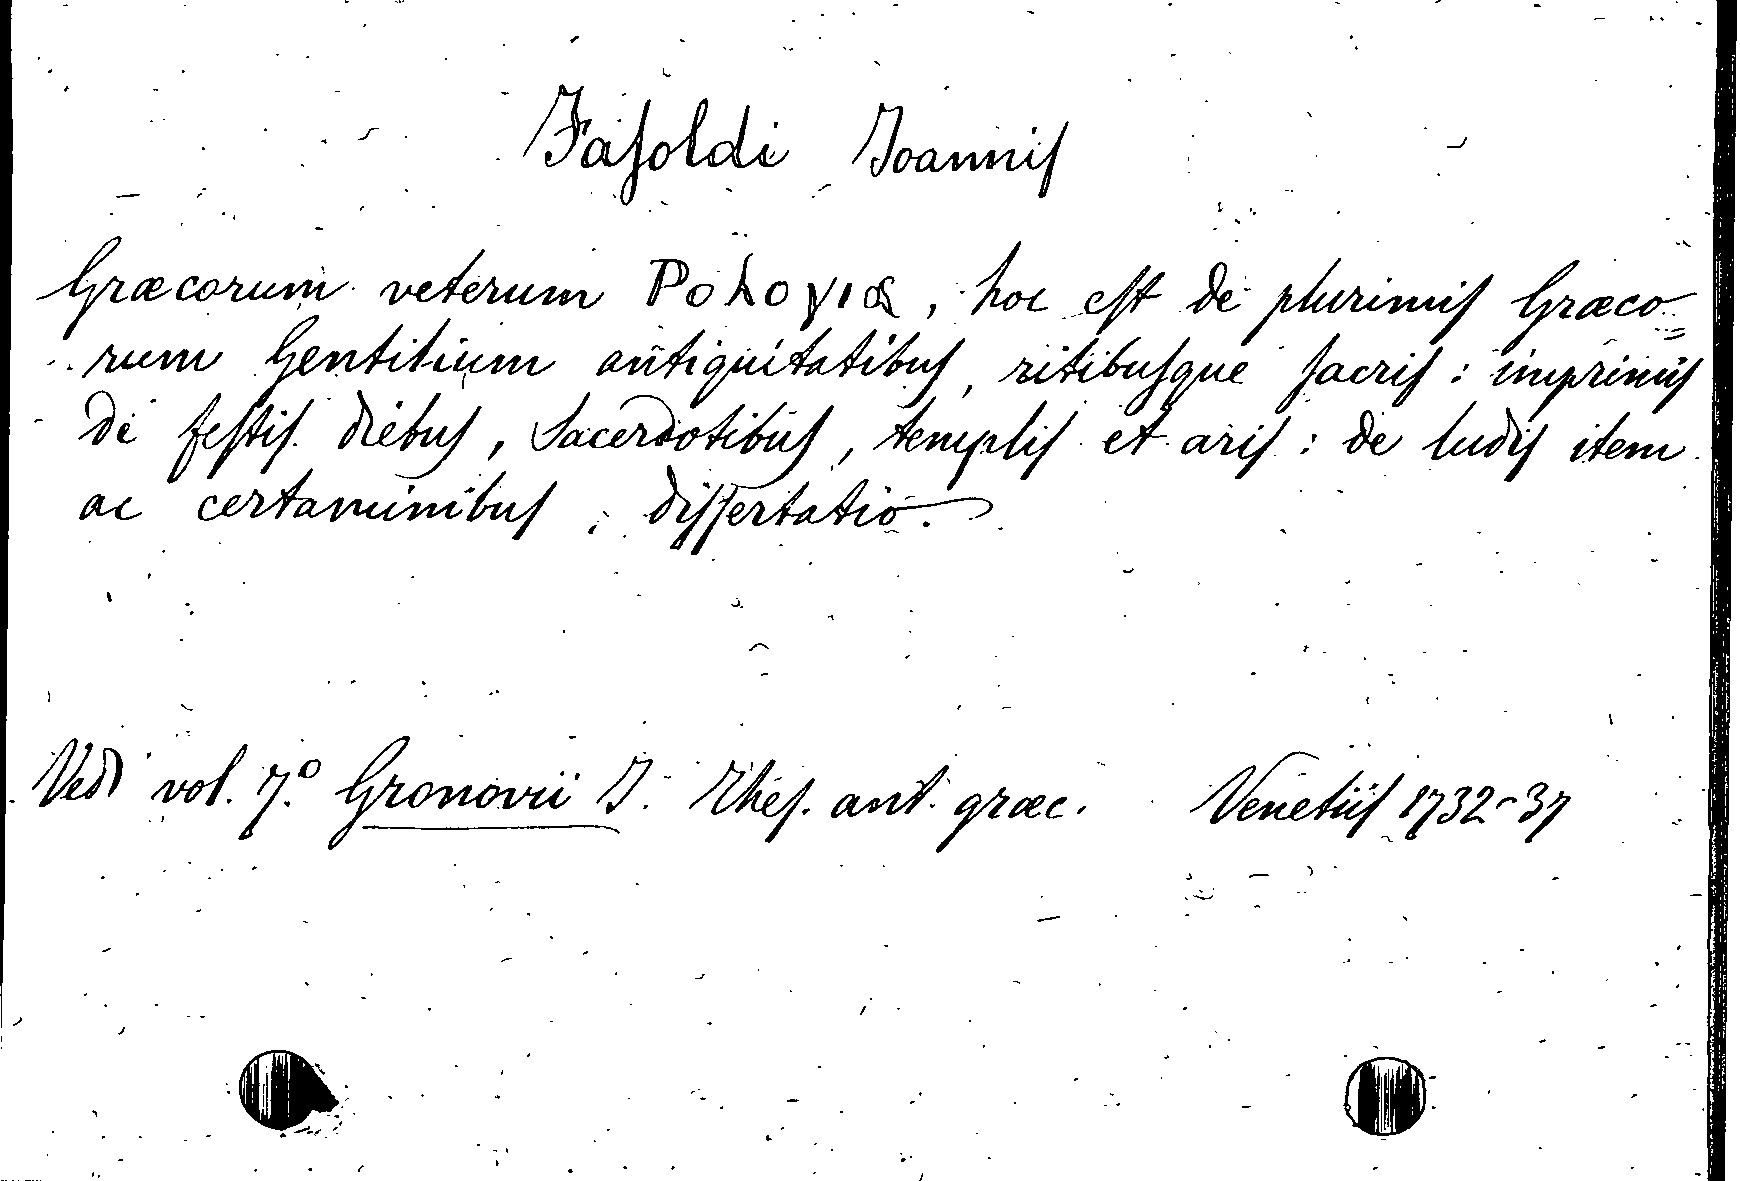 Fasoldi Joannis
Græcorum veterum Ρολογια, hoc est de plurimis Græco
rum Gentilium antiquitatibus, ritibusque sacris: imprimis
de festis diebus, Sacerdotibus, templis et aris: de ludis item
ac certaminibus, dissertatio.
Vedi vol. 7.º Gronovii J. Thes. ant. græc. Venetiis 1732-37